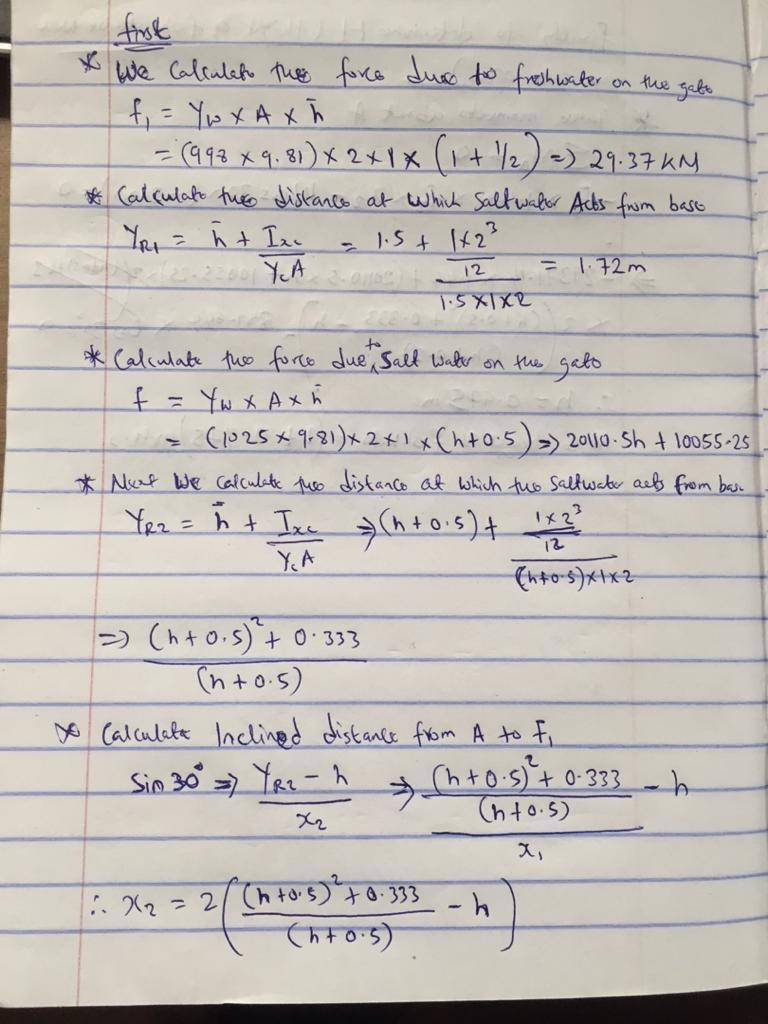 first
* We Calculate the force due to freshwater on the gate
f₁ = γw × A × h̄
= (998 × 9.81) × 2 × 1 × (1 + 1/2) => 29.37 KM
* Calculate the distance at which Saltwater Acts from base
YR1 = h̄ + Ixc/YcA = 1.5 + (1×2³/12)/(1.5×1×2) = 1.72m
* Calculate the force due to Salt water on the gate
f = γw × A × h̄
= (1025 × 9.81) × 2 × 1 × (h+0.5) => 20110.5h + 10055.25
* Next We calculate the distance at which the Saltwater acts from base
YR2 = h̄ + Ixc/YcA => (h+0.5) + (1×2³/12)/((h+0.5)×1×2)
=> ((h+0.5)² + 0.333)/(h+0.5)
* Calculate Inclined distance from A to F₁
Sin 30° => (YR2 - h)/x₂ => (((h+0.5)² + 0.333)/(h+0.5) - h)/x₁
∴ x₂ = 2(((h+0.5)² + 0.333)/(h+0.5) - h)